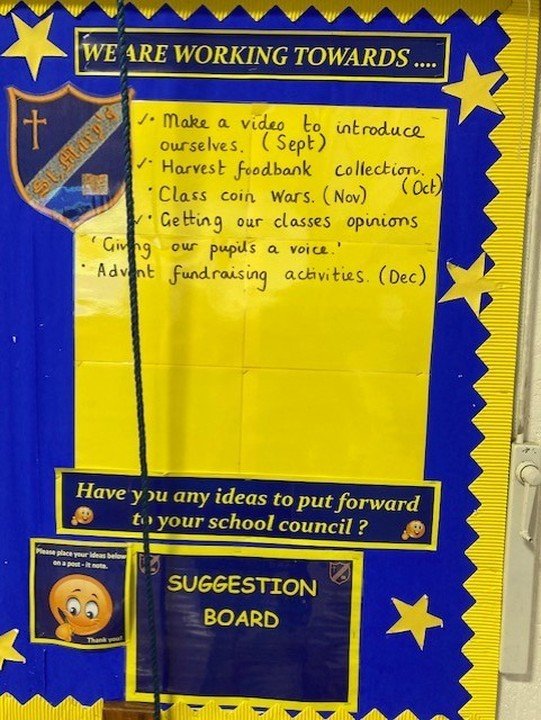 WE ARE WORKING TOWARDS ....
St. Mary's
✓• Make a video to introduce
ourselves. (Sept)
✓• Harvest foodbank collection.
(Oct)
• Class coin wars. (Nov)
✓• Getting our classes opinions
'Giving our pupil's a voice.'
• Advent fundraising activities. (Dec)
Have you any ideas to put forward
to your school council ?
Please place your ideas below
on a post - it note.
Thank you!
SUGGESTION
BOARD